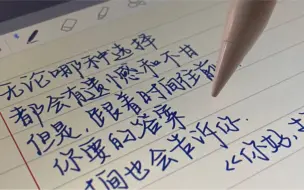 无论哪种选择
都会有遗憾和不甘
但是,跟着时间往前
你要的答案
时间也会告诉你.
《你好,